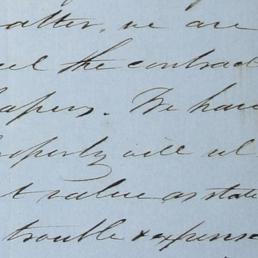 atter, we are
the contract
papers. We have
property will
t value as state
trouble & expense